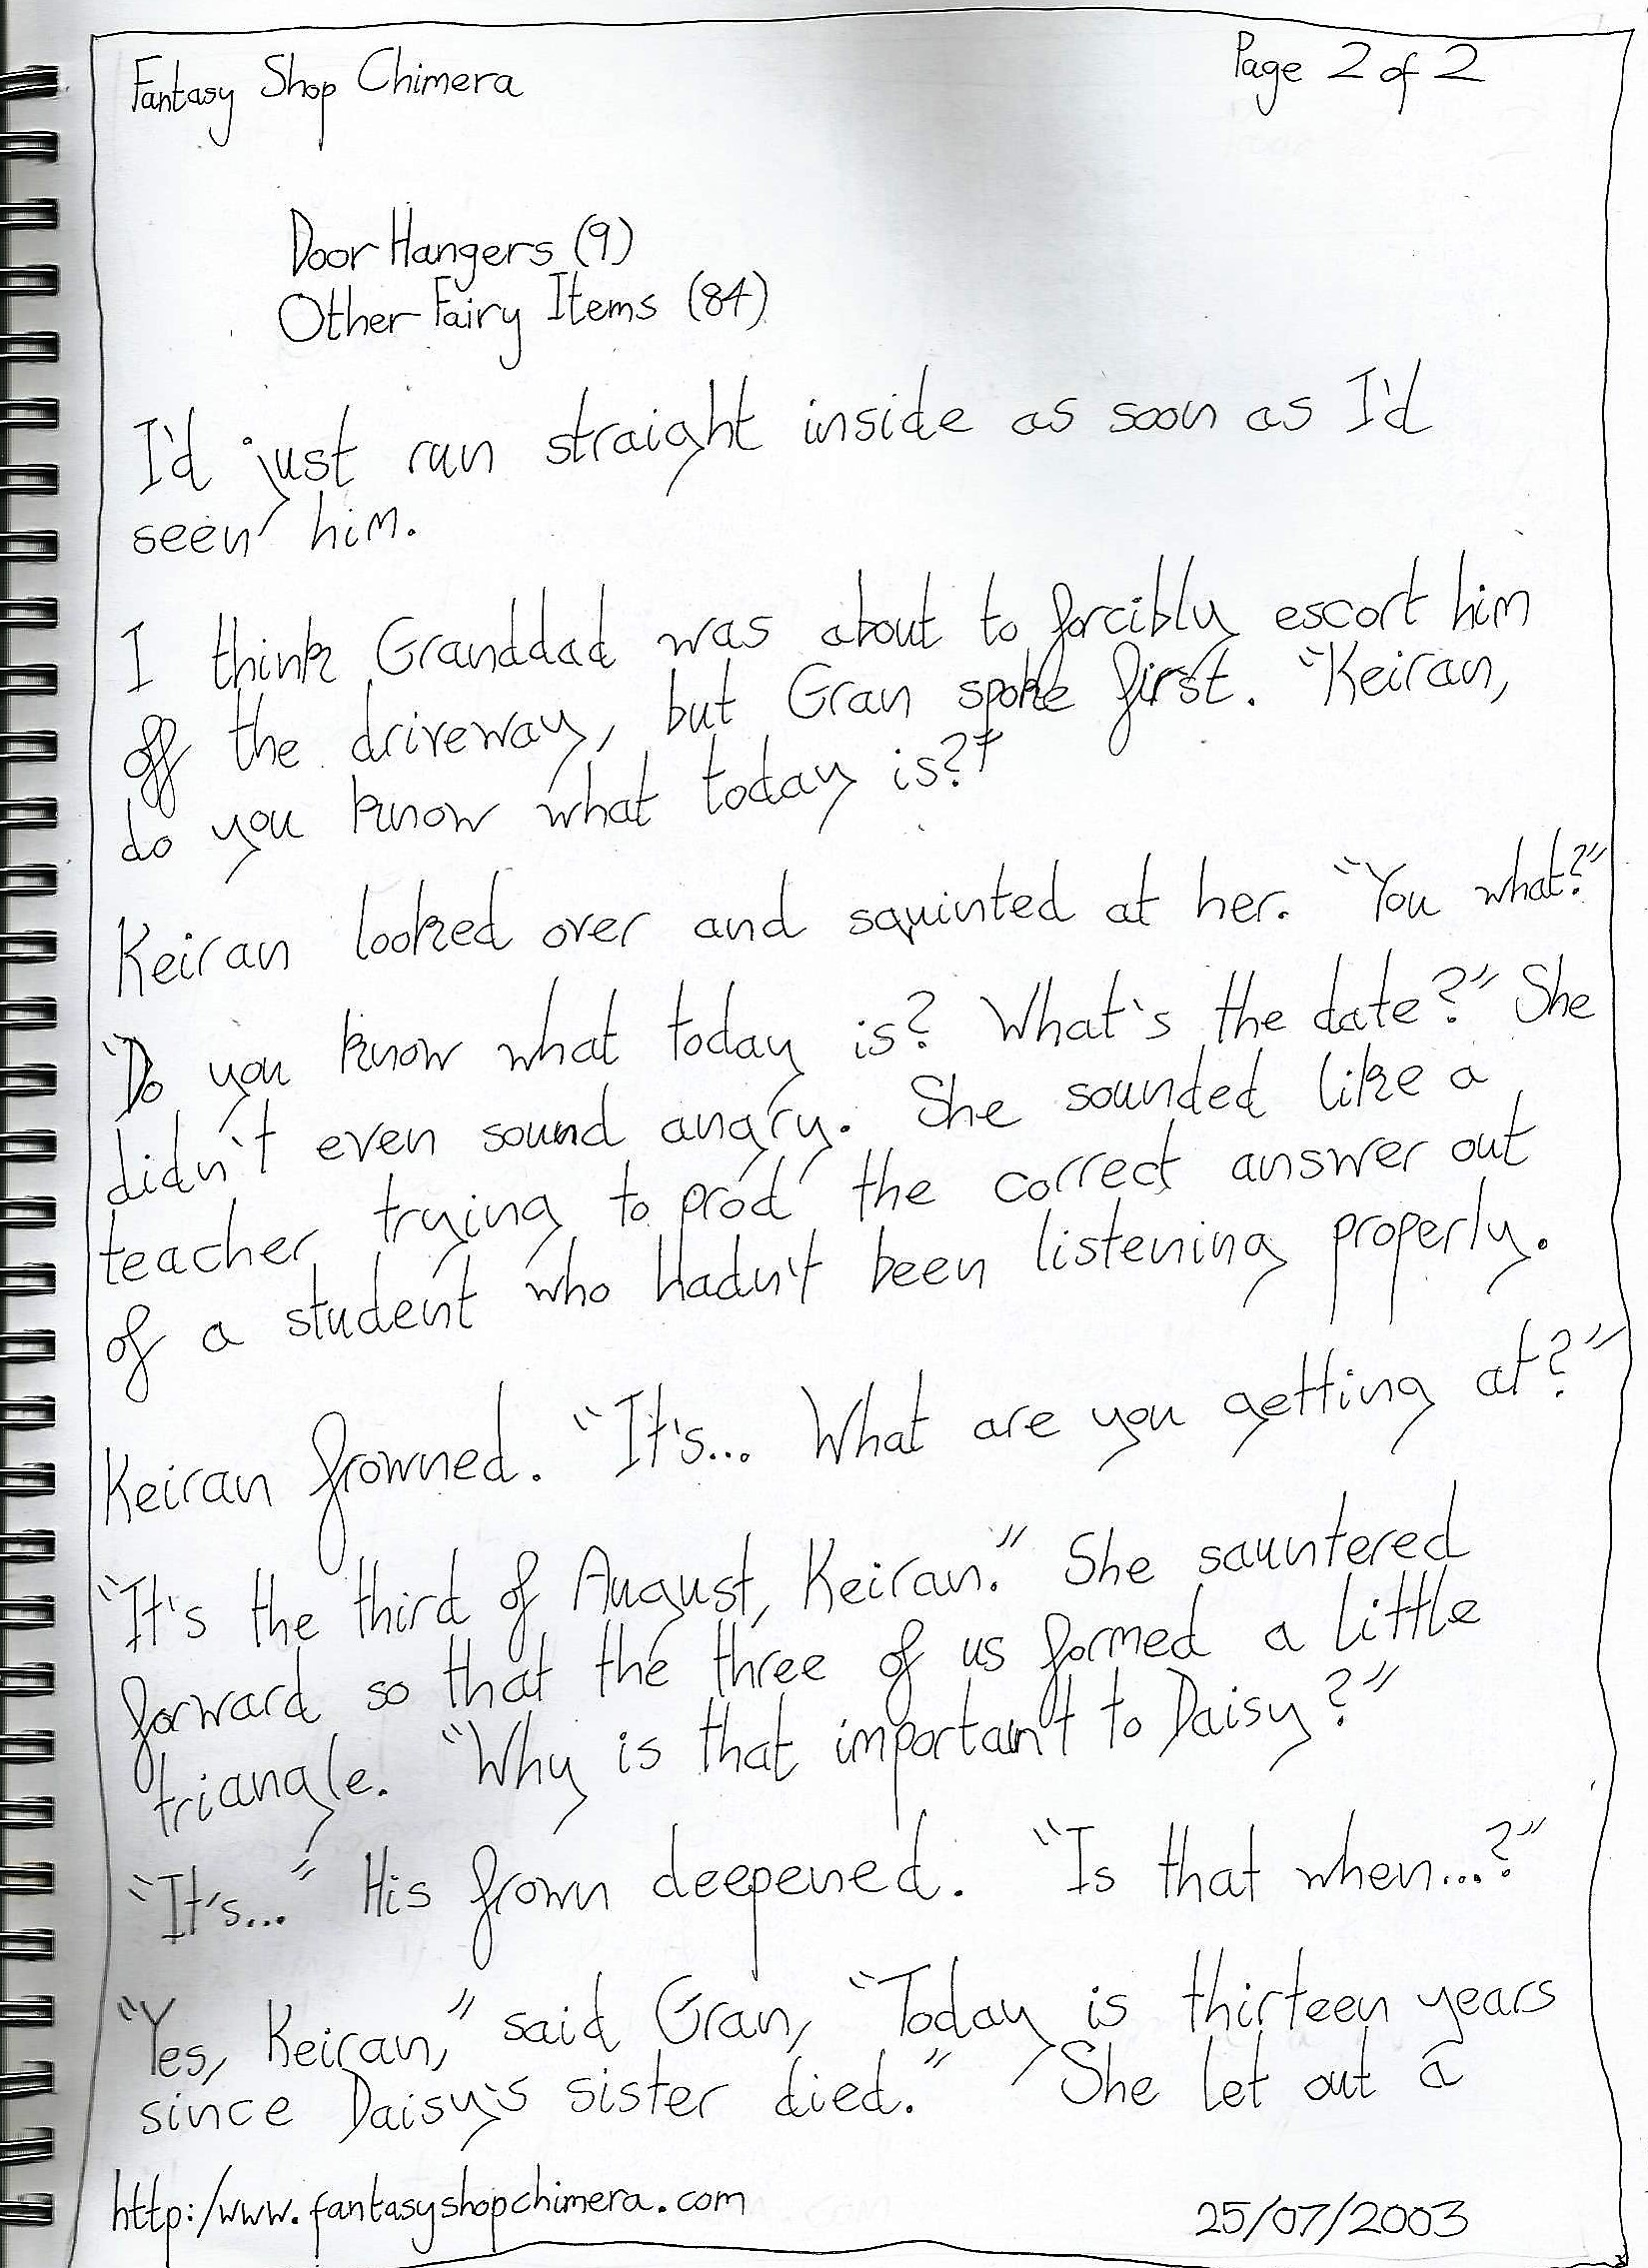 Fantasy Shop Chimera
Page 2 of 2
Door Hangers (9)
Other Fairy Items (84)
I'd just run straight inside as soon as I'd
seen him.
I think Granddad was about to forcibly escort him
off the driveway, but Gran spoke first. "Keiran,
do you know what today is?"
Keiran looked over and squinted at her. "You what?"
"Do you know what today is? What's the date?" She
didn't even sound angry. She sounded like a
teacher trying to prod the correct answer out
of a student who hadn't been listening properly.
Keiran frowned. "It's... What are you getting at?"
"It's the third of August, Keiran." She sauntered
forward so that the three of us formed a little
triangle. "Why is that important to Daisy?"
"It's..." His frown deepened. "Is that when...?"
"Yes, Keiran," said Gran, "Today is thirteen years
since Daisy's sister died." She let out a
http:/www.fantasyshopchimera.com
25/07/2003